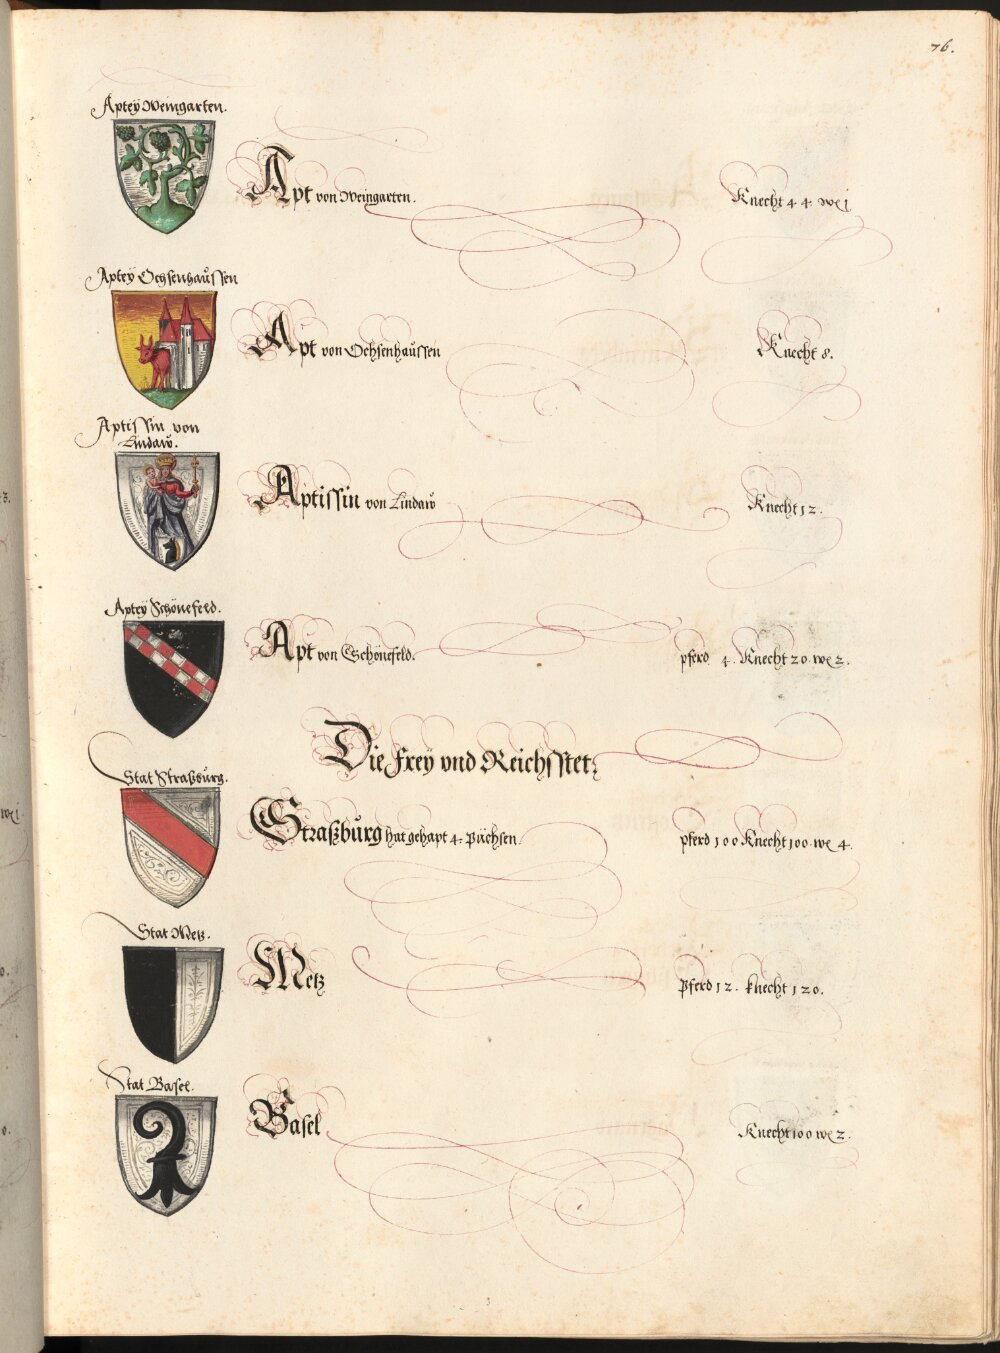 76.
Aptey Weingarten.
Apt von Weingarten.
Knecht 44 we 1
Aptey Ochsenhaussen
Apt von Ochsenhaussen
Knecht 8.
Aptissin von
Lindaw.
Aptissin von Lindaw
Knecht 12.
Aptey Schönefeld.
Apt von Schönefeld.
pferd 4. Knecht 20 we 2.
Die Frey vnd Reichsstet.
Stat Straßburg.
Straßburg hat gehapt 4. Büchsen
pferd 100 Knecht 100 we 4.
Stat Metz.
Metz
Pferd 12. knecht 120.
Stat Basel.
Basel
Knecht 100 we 2.